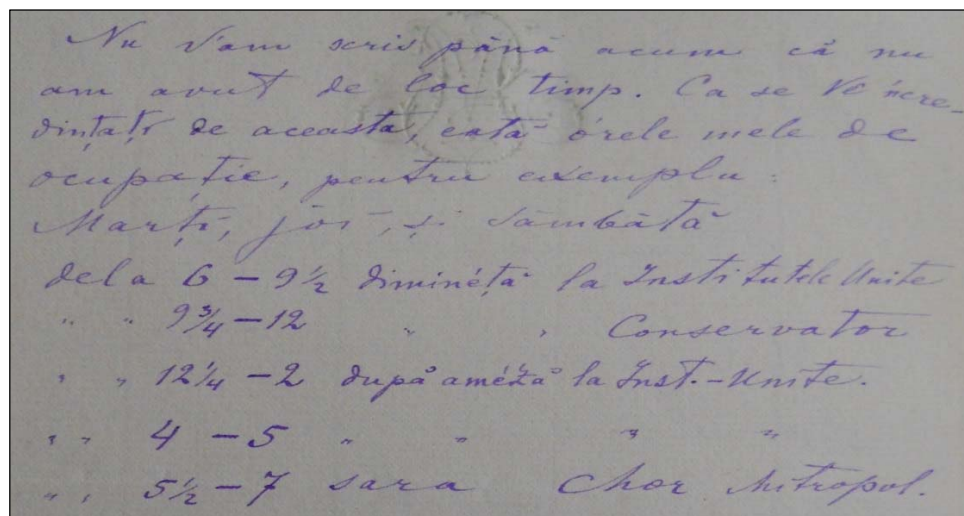 Nu V'am scris până acum că nu
am avut de loc timp. Ca se Vĕ încre-
dințațĭ de aceasta, eată órele mele de
ocupație, pentru exemplu:
Marțĭ, joĭ, și Sâmbătă
dela 6 – 9½ diminéța la Institutele Unite
" " 9¾ – 12 " " Conservator
" " 12¼ – 2 după améză la Inst.-Unite.
" " 4 – 5 " " " "
" " 5½ – 7 sara Chor Mitropol.